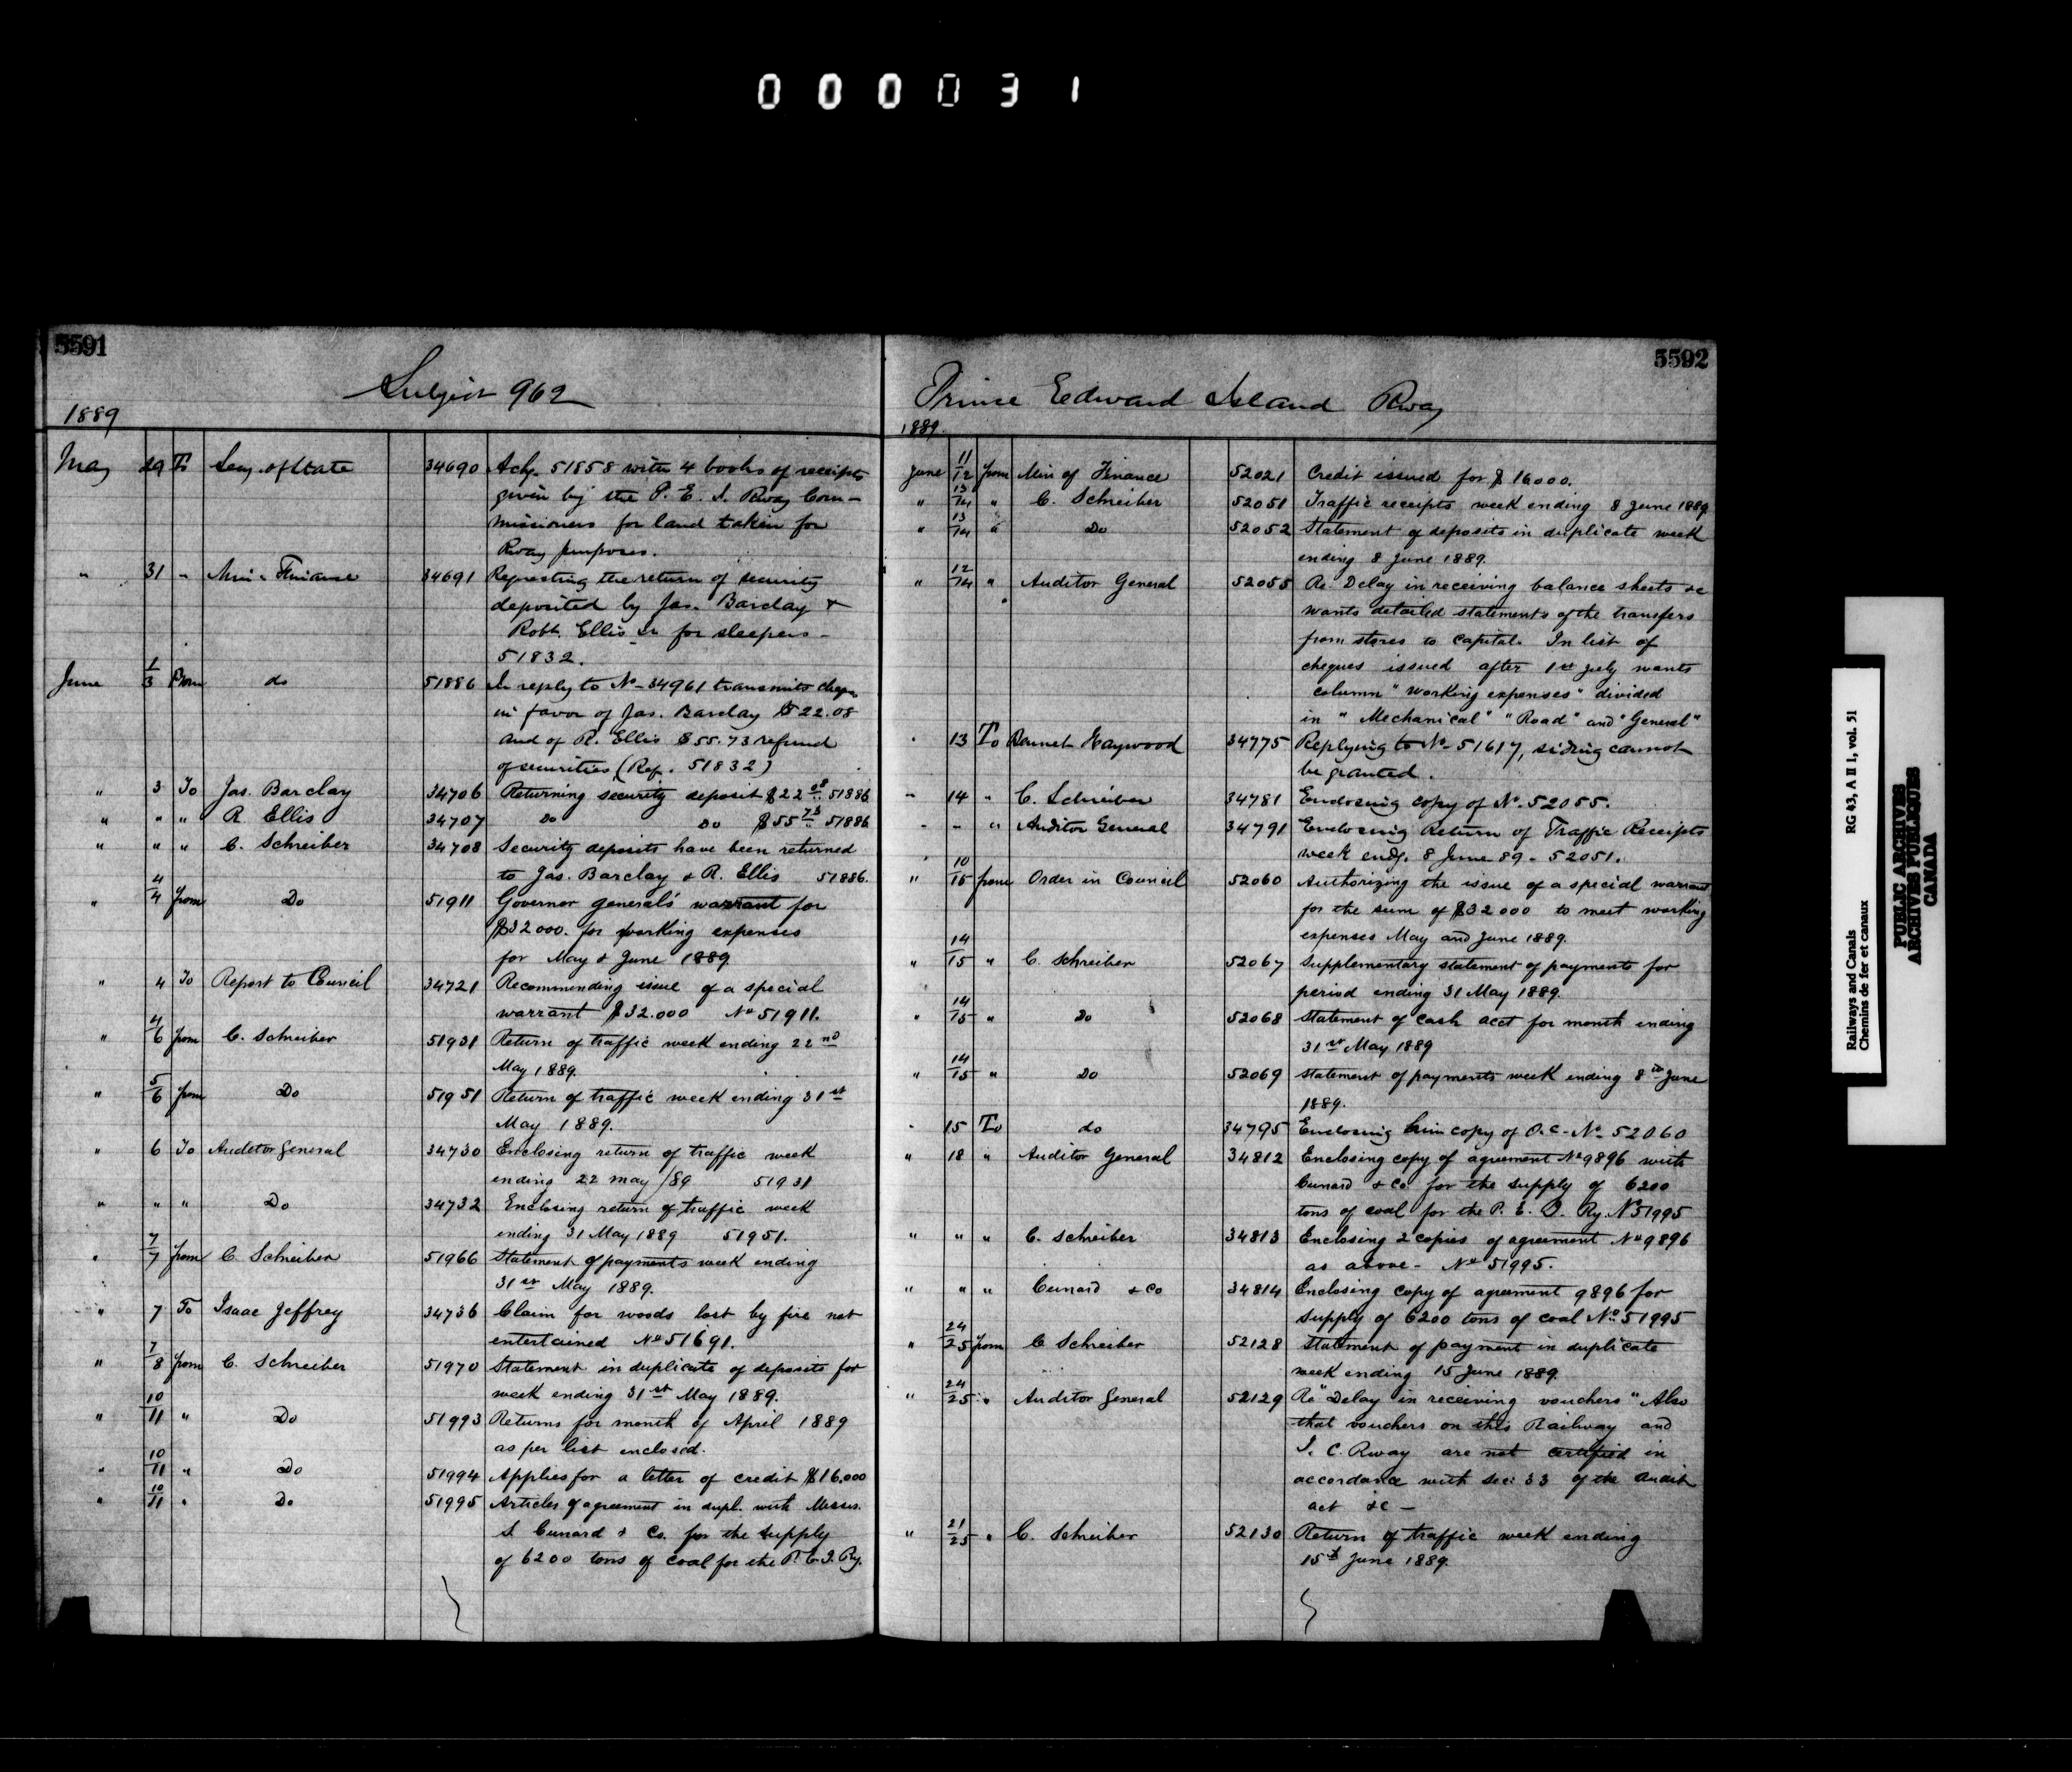 000031
5591
Subject 962
1889
May 29 To Secy. of State 34690 Ackg. 51858 with 4 books of receipts
given by the P. E. I. Rway Com-
missioners for land taken for
Rway purposes.
" 31 " Min " Finance 34691 Requesting the return of security
deposited by Jas. Barclay &
Robt. Ellis Sr for sleepers -
51832.
June 1/3 From do 51886 In reply to No - 34961 transmits cheque
in favor of Jas. Barclay $22.08
and of R. Ellis $55.73 refund
of securities (Ref. 51832)
" 3 To Jas. Barclay 34706 Returning security deposit $22.08 51886
" " " R. Ellis 34707 Do Do $55.73 51886
" " " C. Schreiber 34708 Security deposits have been returned
to Jas. Barclay & R. Ellis 51886.
" 4/4 from Do 51911 Governor General's warrant for
$32000. for working expenses
for May & June 1889
" 4 To Report to Council 34721 Recommending issue of a special
warrant $32.000 No 51911.
" 4/6 from C. Schreiber 51931 Return of traffic week ending 22nd
May 1889.
" 5/6 from Do 51951 Return of traffic week ending 31st
May 1889.
" 6 To Auditor General 34730 Enclosing return of traffic week
ending 22 May /89 51931
" " " Do 34732 Enclosing return of traffic week
ending 31 May 1889 51951.
" 7/7 from C. Schreiber 51966 Statement of payments week ending
31st May 1889.
" 7 To Isaac Jeffrey 34736 Claim for woods lost by fire not
entertained No 51691.
" 7/8 from C. Schreiber 51970 Statement in duplicate of deposits for
week ending 31st May 1889.
" 10/11 " Do 51993 Returns for month of April 1889
as per list enclosed.
" 10/11 " Do 51994 Applies for a letter of credit $16,000
" 10/11 " Do 51995 Articles of agreement in dupl. with Messrs.
S Cunard & Co. for the supply
of 6200 tons of coal for the P.E.I. Ry.
5592
Prince Edward Island Rway
1889.
June 11/12 from Min of Finance 52021 Credit issued for $16000.
" 13/14 " C. Schreiber 52051 Traffic receipts week ending 8 June 1889
" 13/14 " Do 52052 Statement of deposits in duplicate week
ending 8 June 1889.
" 12/14 " Auditor General 52055 Re. Delay in receiving balance sheets &c
wants detailed statements of the transfers
from stores to capital. In list of
cheques issued after 1st July wants
column "working expenses" divided
in "Mechanical" "Road" and "General"
" 13 To Bennet Haywood 34775 Replying to No - 51617, siding cannot
be granted.
" 14 " C. Schreiber 34781 Enclosing copy of No. 52055.
" " " Auditor General 34791 Enclosing Return of Traffic Receipts
week endg. 8 June 89 - 52051.
" 10/15 from Order in Council 52060 Authorizing the issue of a special warrant
for the sum of $32000 to meet working
expenses May and June 1889.
" 14/15 " C. Schreiber 52067 Supplementary statement of payments for
period ending 31 May 1889.
" 14/15 " Do 52068 Statement of cash acct for month ending
31st May 1889
" 14/15 " Do 52069 Statement of payments week ending 8th June
1889.
" 15 To do 34795 Enclosing him copy of O.C - No - 52060
" 18 " Auditor General 34812 Enclosing copy of agreement No 9896 with
Cunard & Co for the supply of 6200
tons of coal for the P. E. I. Ry. No 51995
" " " C. Schreiber 34813 Enclosing 2 copies of agreement No 9896
as above - No 51995.
" " " Cunard & Co 34814 Enclosing copy of agreement 9896 for
supply of 6200 tons of coal No 51995
" 24/25 from C Schreiber 52128 Statement of payment in duplicate
week ending 15 June 1889.
" 24/25 " Auditor General 52129 Re "Delay in receiving vouchers" Also
that vouchers on this Railway and
I. C. Rway are not certified in
accordance with Sec: 33 of the Audit
act &c -
" 21/25 " C. Schreiber 52130 Return of traffic week ending
15th June 1889.
Railways and Canals RG 43, A II 1, vol. 51
Chemins de fer et canaux
PUBLIC ARCHIVES
ARCHIVES PUBLIQUES
CANADA